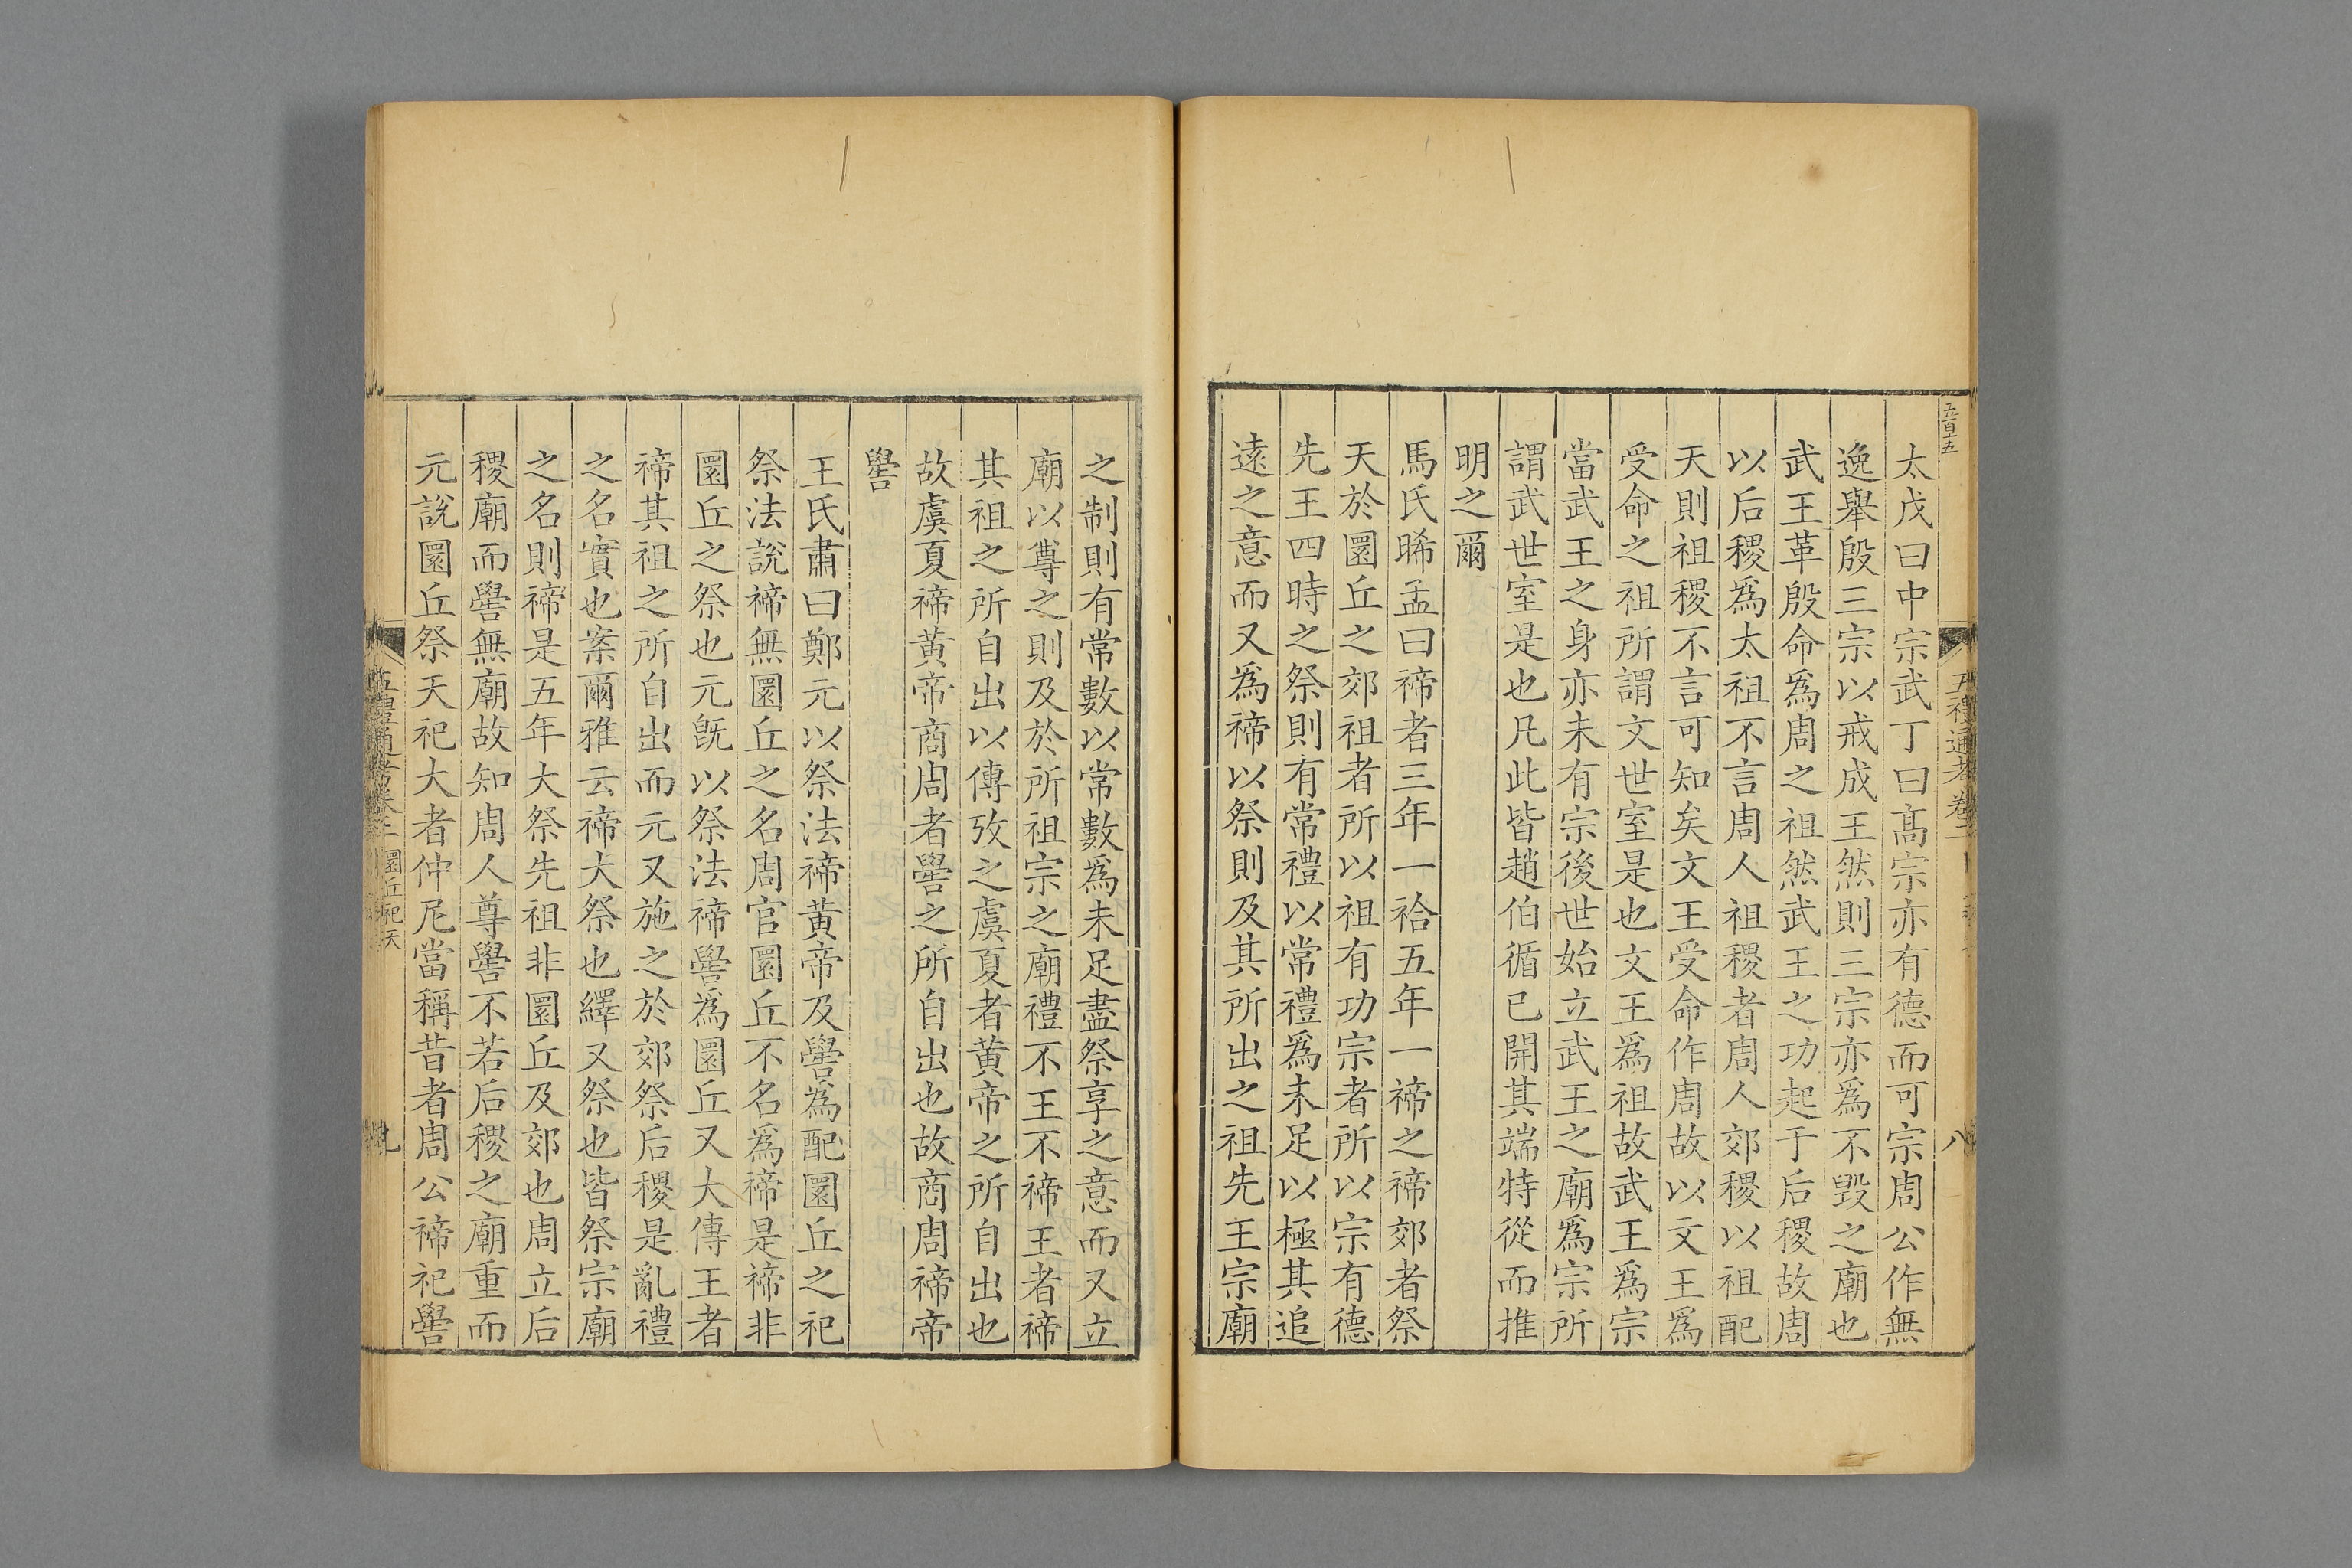 五百十五
五禮通考卷二
八
太戊曰中宗武丁曰髙宗亦有德而可宗周公作無
逸舉殷三宗以戒成王然則三宗亦爲不毀之廟也
武王革殷命爲周之祖然武王之功起于后稷故周
以后稷爲太祖不言周人祖稷者周人郊稷以祖配
天則祖稷不言可知矣文王受命作周故以文王爲
受命之祖所謂文世室是也文王爲祖故武王爲宗
當武王之身亦未有宗後世始立武王之廟爲宗所
謂武世室是也凡此皆趙伯循已開其端特從而推
明之爾
馬氏晞孟曰禘者三年一祫五年一禘之禘郊者祭
天於圜丘之郊祖者所以祖有功宗者所以宗有德
先王四時之祭則有常禮以常禮爲未足以極其追
遠之意而又爲禘以祭則及其所出之祖先王宗廟
之制則有常數以常數爲未足盡祭享之意而又立
廟以尊之則及於所祖宗之廟禮不王不禘王者禘
其祖之所自出以傳攷之虞夏者黄帝之所自出也
故虞夏禘黄帝商周者嚳之所自出也故商周禘帝
嚳
王氏肅曰鄭元以祭法禘黄帝及嚳爲配圜丘之祀
祭法說禘無圜丘之名周官圜丘不名爲禘是禘非
圜丘之祭也元旣以祭法禘嚳爲圜丘又大傳王者
禘其祖之所自出而元又施之於郊祭后稷是亂禮
之名實也案爾雅云禘大祭也繹又祭也皆祭宗廟
之名則禘是五年大祭先祖非圜丘及郊也周立后
稷廟而嚳無廟故知周人尊嚳不若后稷之廟重而
元說圜丘祭天祀大者仲尼當稱昔者周公禘祀嚳
五禮通考卷二
圜丘祀天
九